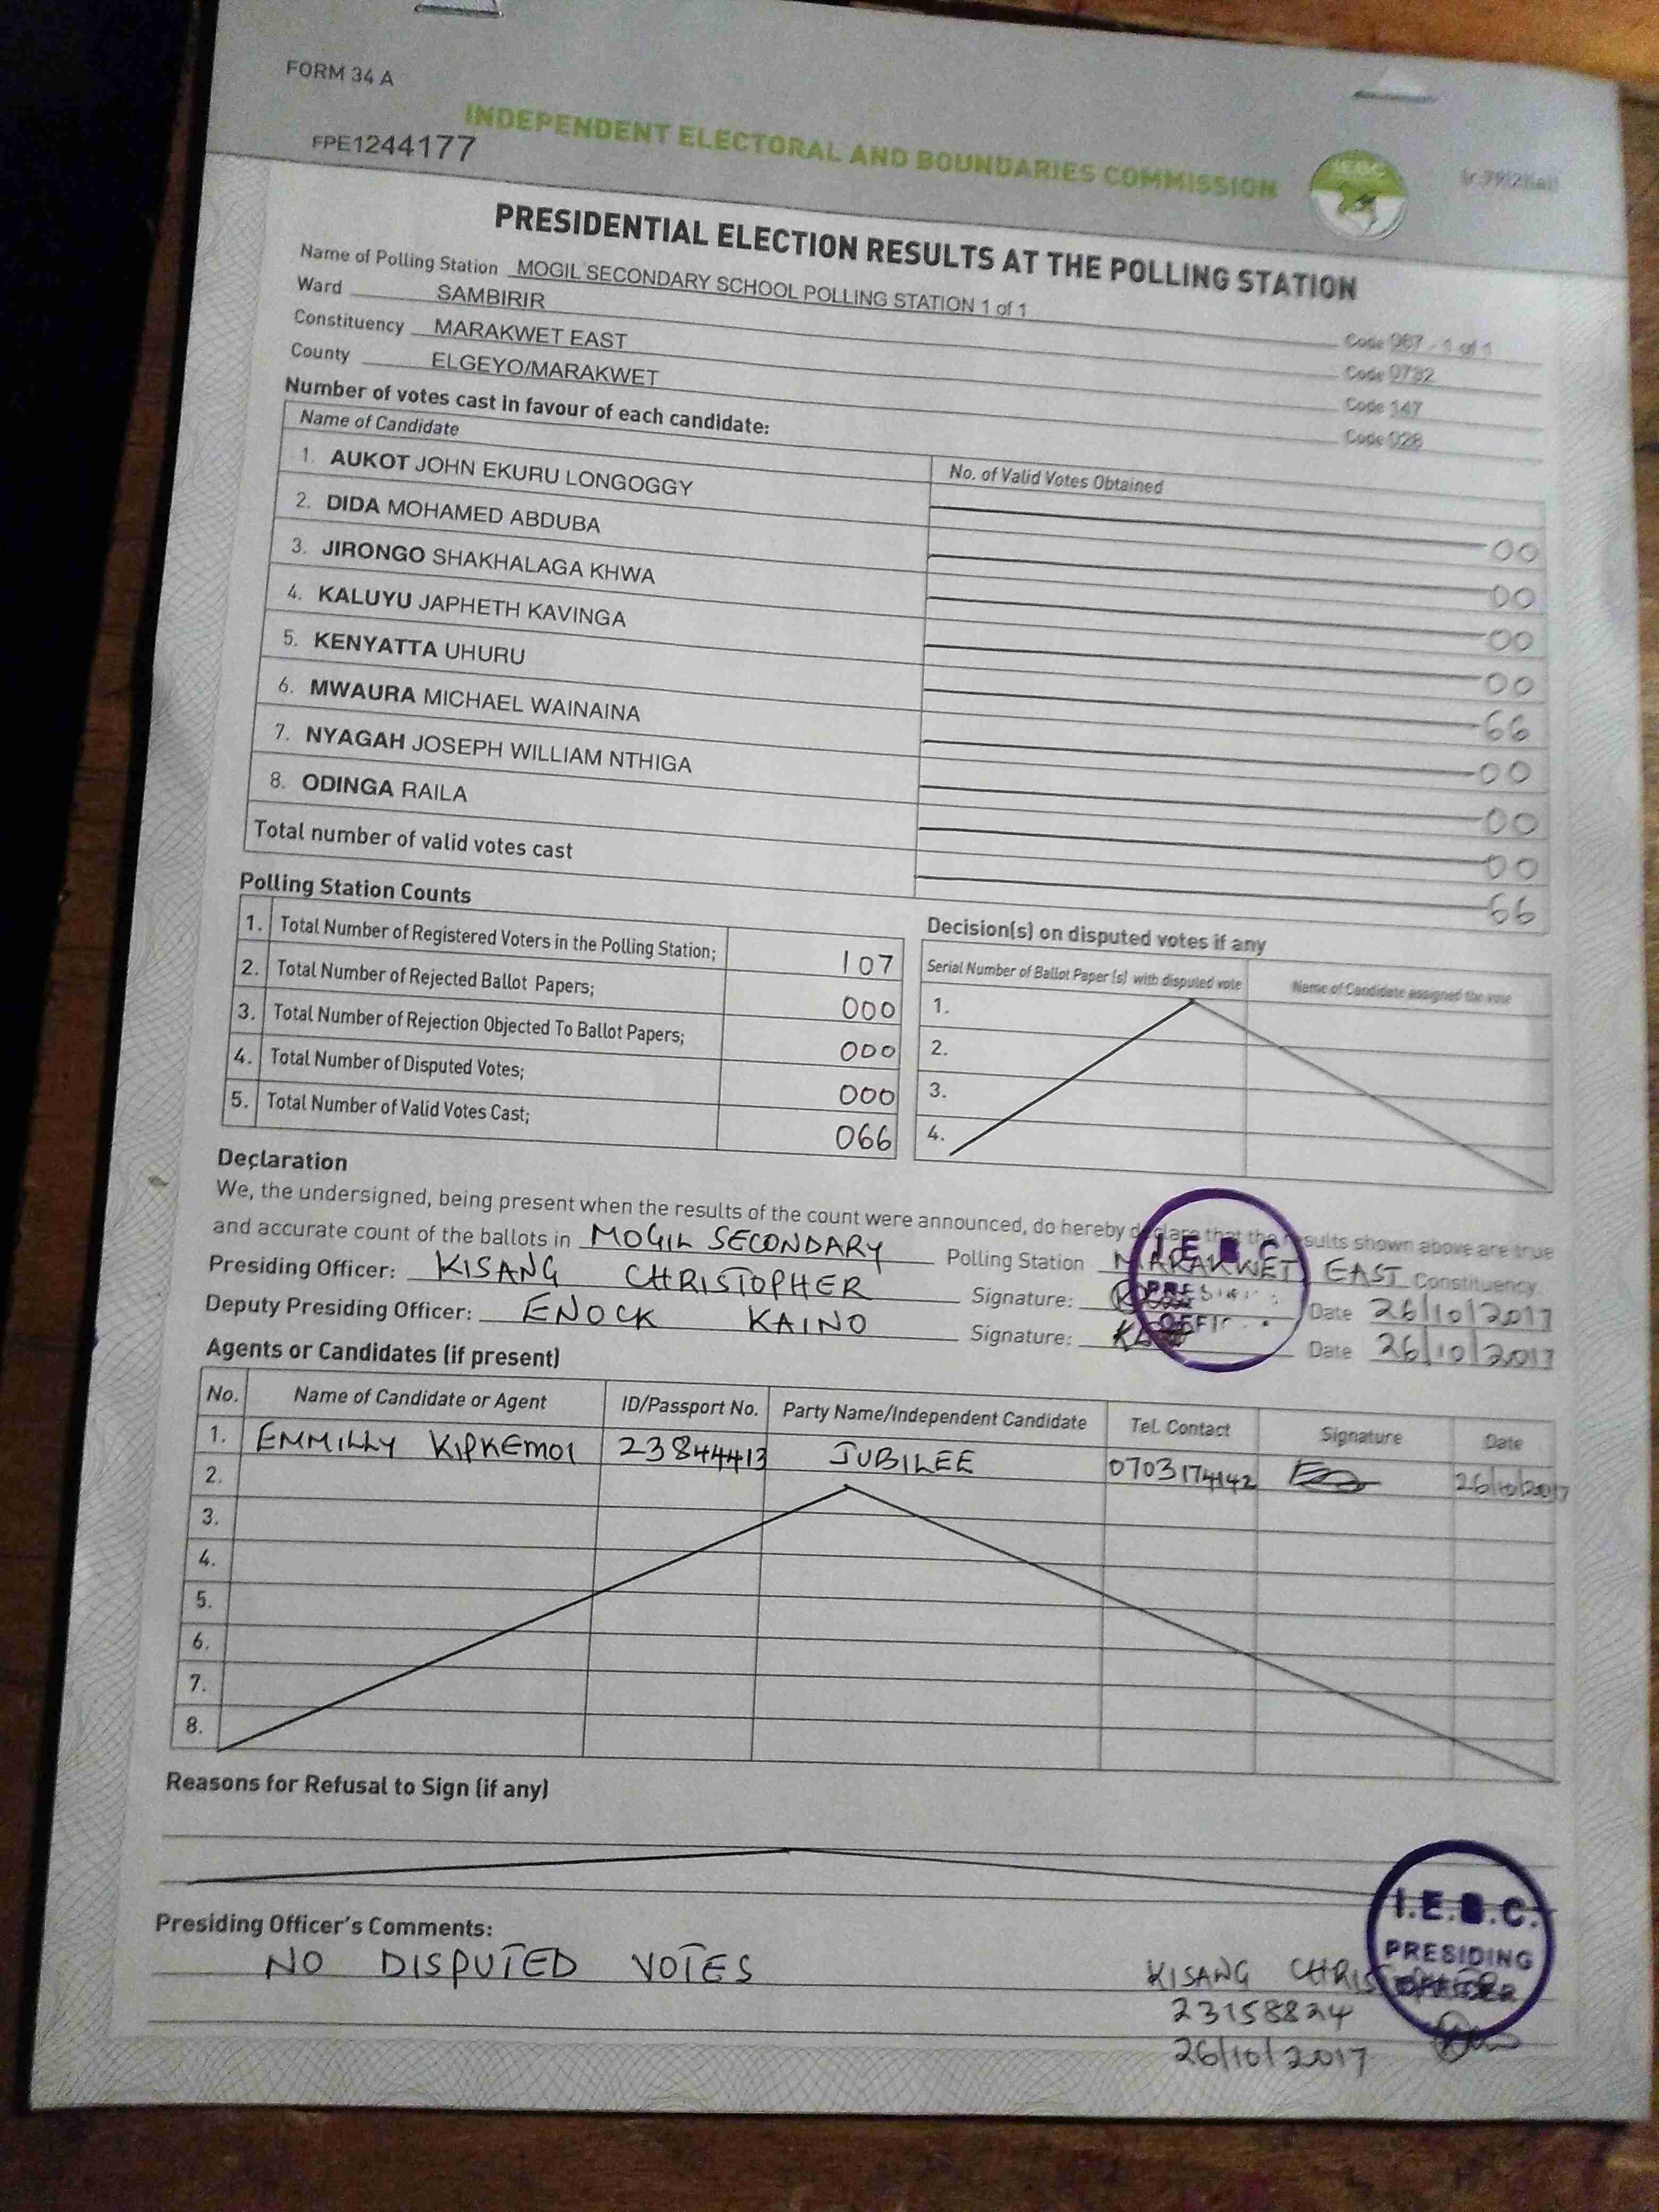 FORM 34 A
INDEPENDENT ELECTORAL AND BOUNDARIES COMMISSION
FPE1244177
PRESIDENTIAL ELECTION RESULTS AT THE POLLING STATION
Name of Polling Station MOGIL SECONDARY SCHOOL POLLING STATION 1 of 1 Code 067 - 1 of 1
Ward SAMBIRIR Code 0732
Constituency MARAKWET EAST Code 147
County ELGEYO/MARAKWET Code 028
Number of votes cast in favour of each candidate:
Name of Candidate No. of Valid Votes Obtained
1. AUKOT JOHN EKURU LONGOGGY 00
2. DIDA MOHAMED ABDUBA 00
3. JIRONGO SHAKHALAGA KHWA 00
4. KALUYU JAPHETH KAVINGA 00
5. KENYATTA UHURU 66
6. MWAURA MICHAEL WAINAINA 00
7. NYAGAH JOSEPH WILLIAM NTHIGA 00
8. ODINGA RAILA 00
Total number of valid votes cast 66
Polling Station Counts
1. Total Number of Registered Voters in the Polling Station; 107
2. Total Number of Rejected Ballot Papers; 000
3. Total Number of Rejection Objected To Ballot Papers; 000
4. Total Number of Disputed Votes; 000
5. Total Number of Valid Votes Cast; 066
Decision(s) on disputed votes if any
Serial Number of Ballot Paper (s) with disputed vote Name of Candidate assigned the vote
1.
2.
3.
4.
Declaration
We, the undersigned, being present when the results of the count were announced, do hereby declare that the results shown above are true
and accurate count of the ballots in MOGIL SECONDARY Polling Station MARAKWET EAST Constituency.
Presiding Officer: KISANG CHRISTOPHER Signature: Date 26/10/2017
Deputy Presiding Officer: ENOCK KAINO Signature: Date 26/10/2017
I.E.B.C
PRESIDING
OFFICER
Agents or Candidates (if present)
No. Name of Candidate or Agent ID/Passport No. Party Name/Independent Candidate Tel. Contact Signature Date
1. EMMILLY KIPKEMOI 23844413 JUBILEE 0703174142 26/10/2017
2.
3.
4.
5.
6.
7.
8.
Reasons for Refusal to Sign (if any)
Presiding Officer's Comments:
NO DISPUTED VOTES
KISANG CHRISTOPHER
23158824
26/10/2017
I.E.B.C.
PRESIDING
OFFICER